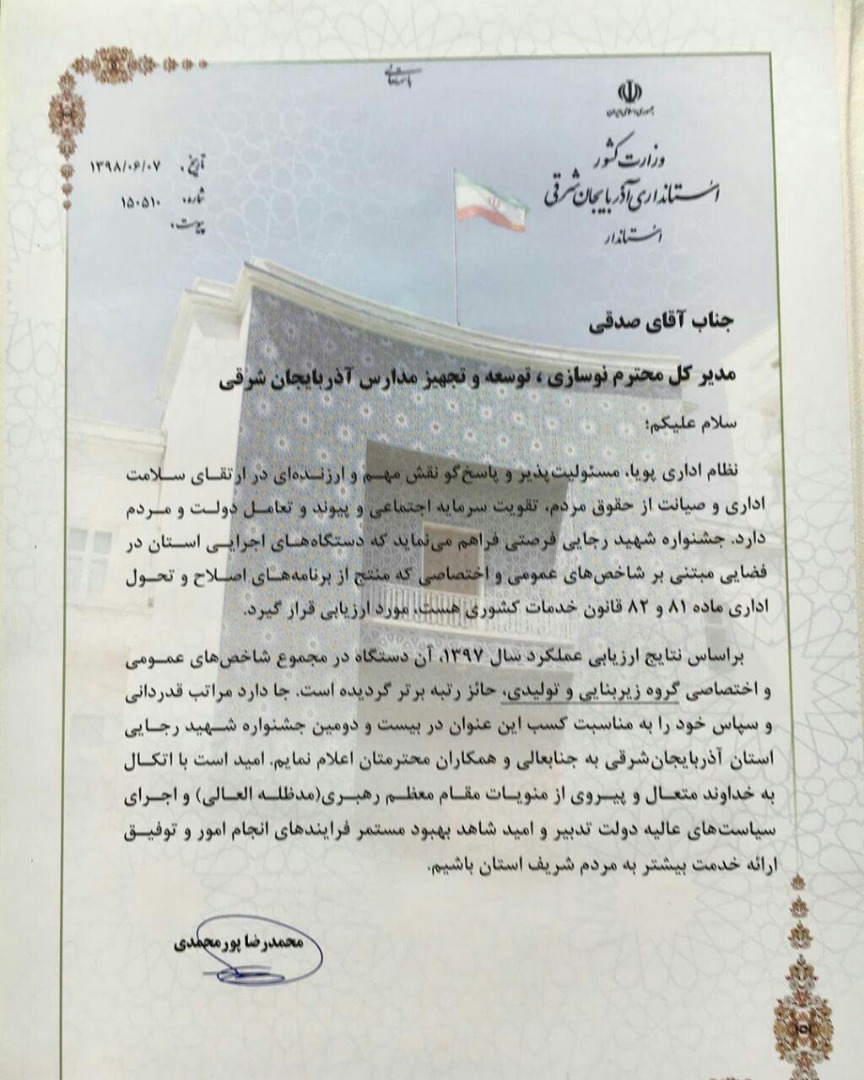 باسمه‌تعالی
جمهوری اسلامی ایران
وزارت کشور
استانداری آذربایجان شرقی
استاندار
تاریخ: ۱۳۹۸/۰۶/۰۷
شماره: ۱۵۰۵۱۰
پیوست:
جناب آقای صدقی
مدیر کل محترم نوسازی ، توسعه و تجهیز مدارس آذربایجان شرقی
سلام علیکم؛
نظام اداری پویا، مسئولیت‌پذیر و پاسخ‌گو نقش مهم و ارزنده‌ای در ارتقای سلامت
اداری و صیانت از حقوق مردم، تقویت سرمایه اجتماعی و پیوند و تعامل دولت و مردم
دارد. جشنواره شهید رجایی فرصتی فراهم می‌نماید که دستگاه‌های اجرایی استان در
فضایی مبتنی بر شاخص‌های عمومی و اختصاصی که منتج از برنامه‌های اصلاح و تحول
اداری ماده ۸۱ و ۸۲ قانون خدمات کشوری هست، مورد ارزیابی قرار گیرد.
براساس نتایج ارزیابی عملکرد سال ۱۳۹۷، آن دستگاه در مجموع شاخص‌های عمومی
و اختصاصی گروه زیربنایی و تولیدی، حائز رتبه برتر گردیده است. جا دارد مراتب قدردانی
و سپاس خود را به مناسبت کسب این عنوان در بیست و دومین جشنواره شهید رجایی
استان آذربایجان‌شرقی به جنابعالی و همکاران محترمتان اعلام نمایم. امید است با اتکال
به خداوند متعال و پیروی از منویات مقام معظم رهبری(مدظله العالی) و اجرای
سیاست‌های عالیه دولت تدبیر و امید شاهد بهبود مستمر فرایندهای انجام امور و توفیق
ارائه خدمت بیشتر به مردم شریف استان باشیم.
محمدرضا پورمحمدی